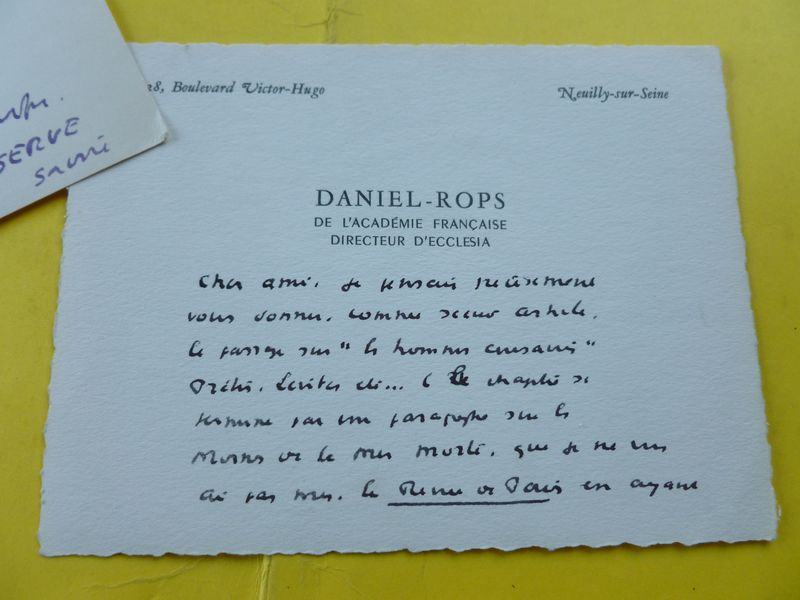 SERVE
8, Boulevard Victor-Hugo
Neuilly-sur-Seine
DANIEL-ROPS
DE L'ACADÉMIE FRANÇAISE
DIRECTEUR D'ECCLESIA
Cher ami. Je pensais précisément
vous donner, comme second article,
le passage sur "les hommes consacrés"
Prêtres, Lévites etc... Le chapitre se
termine par un paragraphe sur les
Moines de la mer morte, que je ne vous
ai pas mis, la Revue de Paris en ayant